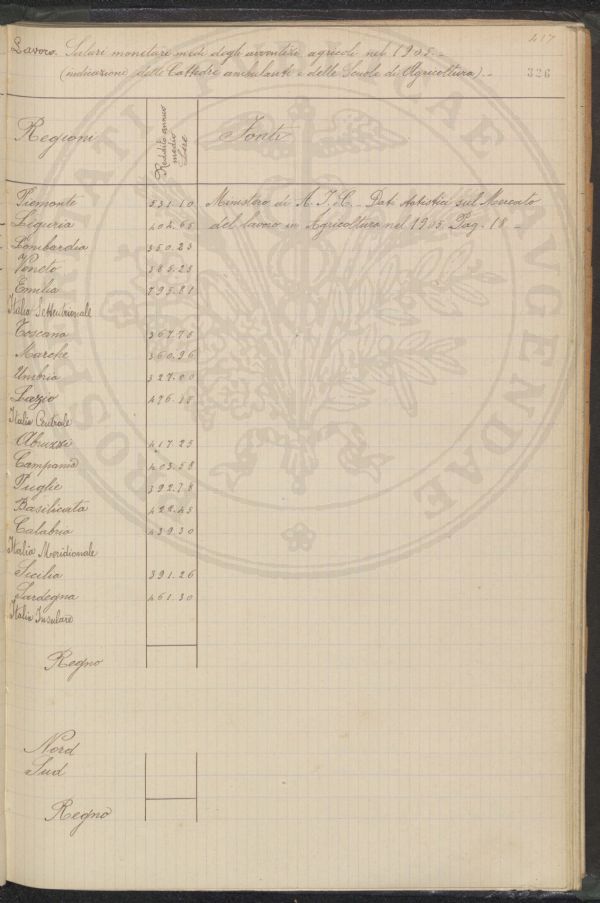 417
Lavoro. Salari monetari medi degli avventizi agricoli nel 1905. -
(indicazioni delle Cattedre ambulanti e delle Scuole di Agricoltura). -
326
Regioni
Reddito annuo medio Lire
Fonti
Piemonte 531.10 Ministero di A. I. e C. - Dati statistici sul Mercato
Liguria 404.65 del lavoro in Agricoltura nel 1905. Pag. 18 -
Lombardia 350.23
Veneto 385.23
Emilia 295.81
Italia Settentrionale
Toscana 367.75
Marche 360.96
Umbria 327.00
Lazio 476.38
Italia Centrale
Abruzzi 417.25
Campania 403.58
Puglie 392.78
Basilicata 422.45
Calabria 439.30
Italia Meridionale
Sicilia 391.26
Sardegna 461.30
Italia Insulare
Regno
Nord
Sud
Regno